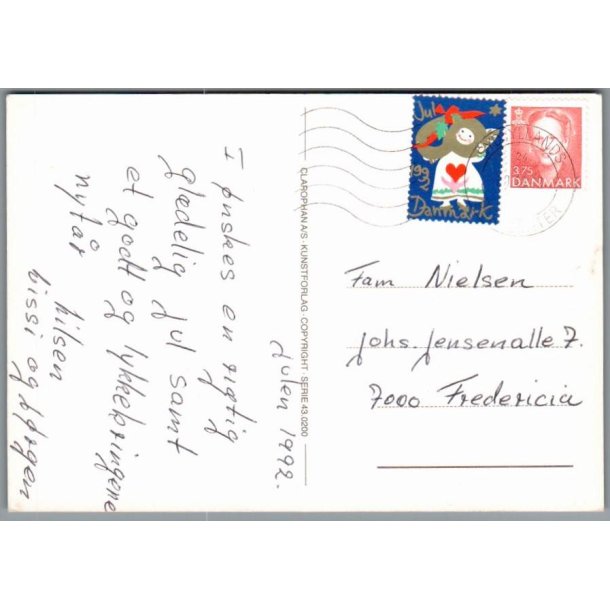 Julen 1992.
I ønskes en rigtig
glædelig jul samt
et godt og lykkebringene
nytår
hilsen
Sissi og Jørgen
CLAROPHAN A/S · KUNSTFORLAG · COPYRIGHT · SERIE 43.0200
Jul
1992
Danmark
3.75
DANMARK
Fam Nielsen
Johs. Jensenalle 7.
7000 Fredericia